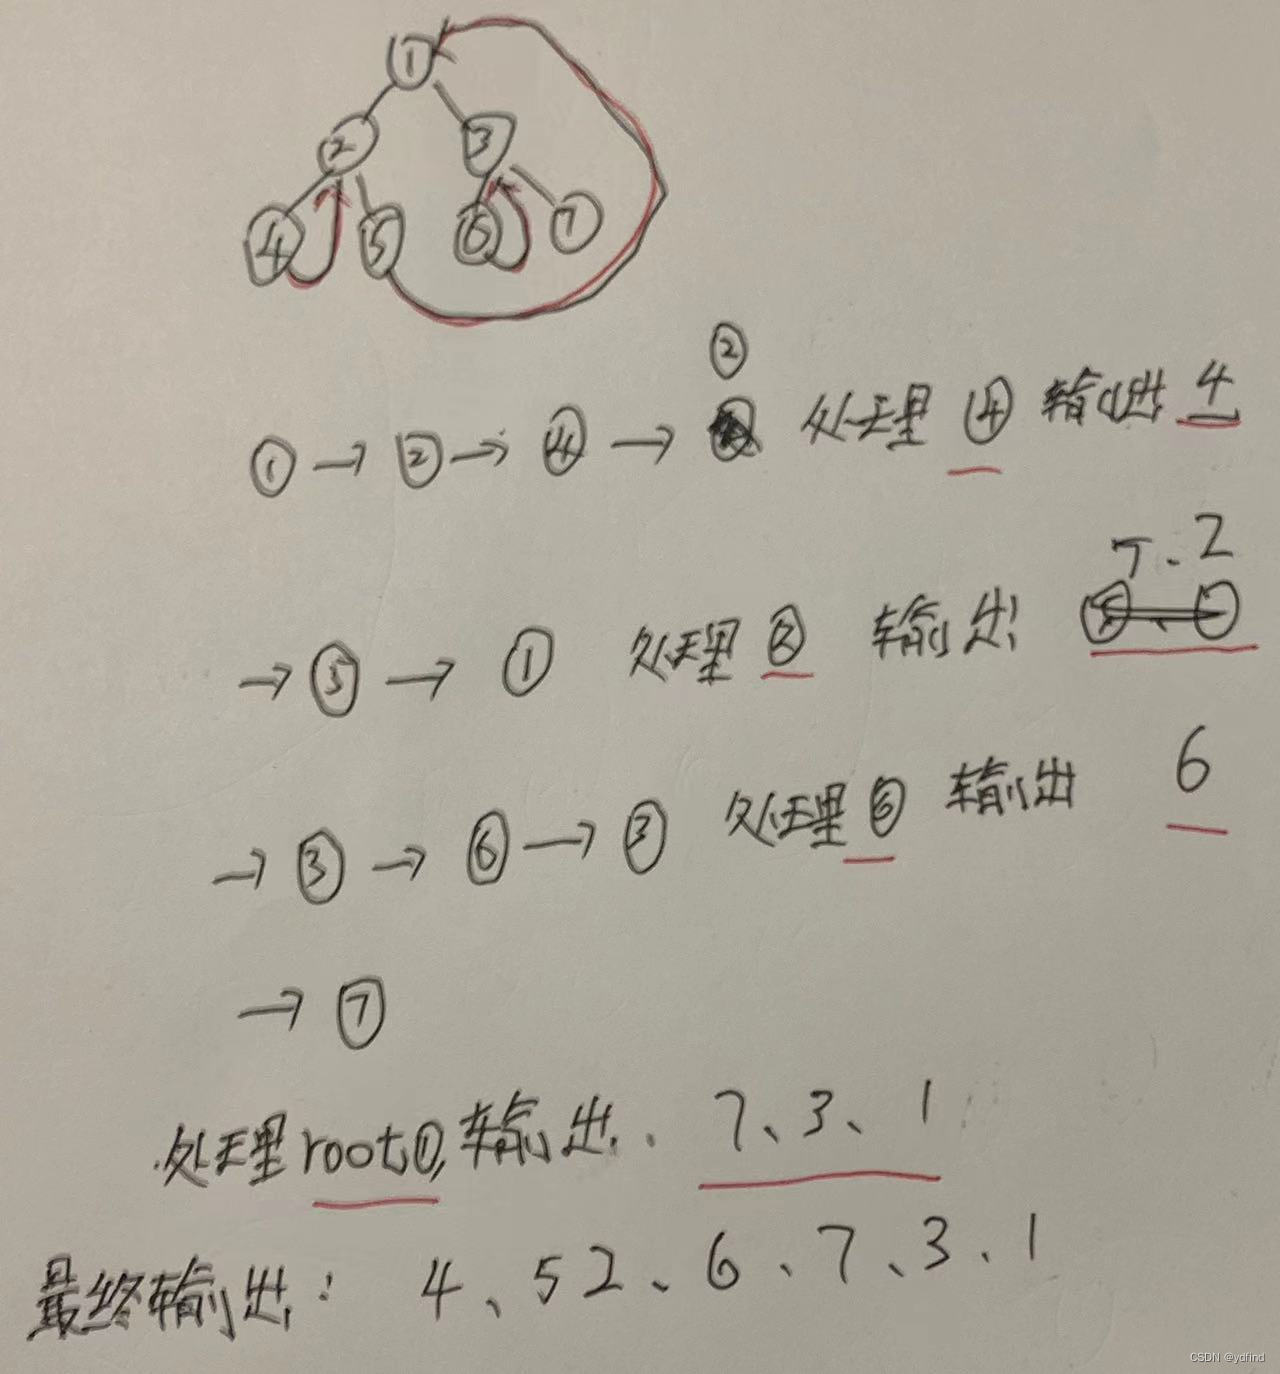 ①
② ③
④ ⑤ ⑥ ⑦
②
① → ② → ④ → 处理 ④ 输出 4
5、2
→ ⑤ → ① 处理 ② 输出
→ ③ → ⑥ → ③ 处理 ⑥ 输出 6
→ ⑦
处理root①,输出、7、3、1
最终输出: 4、52、6、7、3、1
CSDN @ydfind